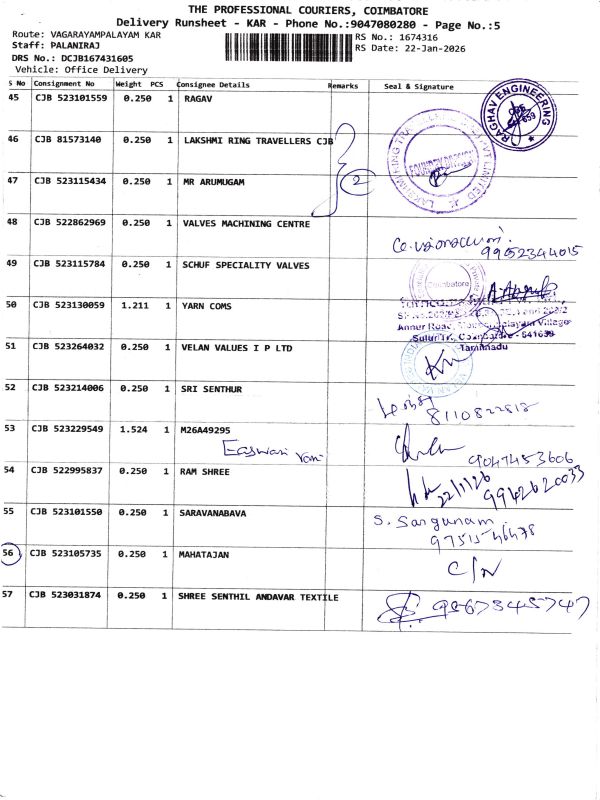 THE PROFESSIONAL COURIERS, COIMBATORE
Delivery Runsheet - KAR - Phone No.:9047080280 - Page No.:5
Route: VAGARAYAMPALAYAM KAR
RS No.: 1674316
Staff: PALANIRAJ
RS Date: 22-Jan-2026
DRS No.: DCJB167431605
Vehicle: Office Delivery
S No Consignment No Weight PCS Consignee Details Remarks Seal & Signature
45 CJB 523101559 0.250 1 RAGAV
RAGHAV ENGINEERING
46 CJB 81573140 0.250 1 LAKSHMI RING TRAVELLERS CJB
FOUNDRY DIVISION
47 CJB 523115434 0.250 1 MR ARUMUGAM 2
48 CJB 522862969 0.250 1 VALVES MACHINING CENTRE
9952344015
49 CJB 523115784 0.250 1 SCHUF SPECIALITY VALVES
Coimbatore
50 CJB 523130059 1.211 1 YARN COMS
Sulur TK, Coimbatore - 641659
Tamilnadu
51 CJB 523264032 0.250 1 VELAN VALUES I P LTD
52 CJB 523214006 0.250 1 SRI SENTHUR
8110822818
53 CJB 523229549 1.524 1 M26A49295
Easwari
9047453606
54 CJB 522995837 0.250 1 RAM SHREE
22/1/26
9942620033
55 CJB 523101550 0.250 1 SARAVANABAVA
S. Sargunam
56 CJB 523105735 0.250 1 MAHATAJAN
C/N
57 CJB 523031874 0.250 1 SHREE SENTHIL ANDAVAR TEXTILE